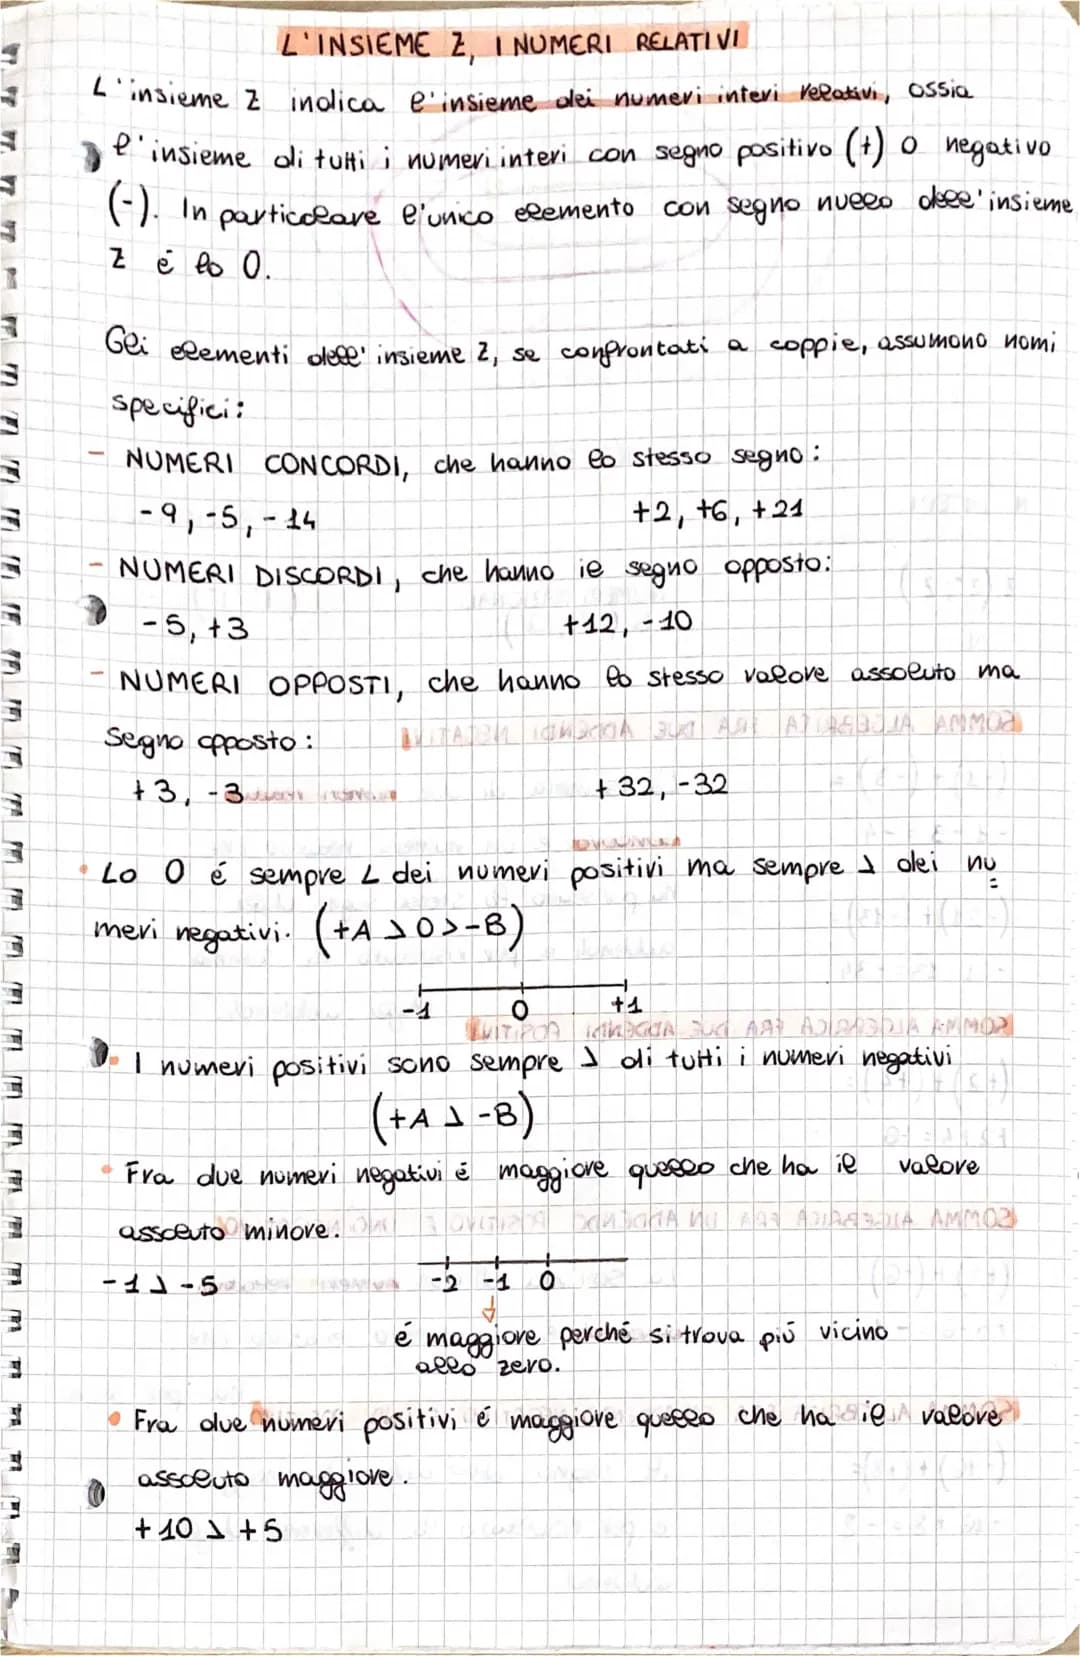 L'INSIEME Z, I NUMERI RELATIVI
L'insieme Z indica l'insieme dei numeri interi relativi, ossia
l'insieme di tutti i numeri interi con segno positivo (+) o negativo
(-). In particolare l'unico elemento con segno nullo dell'insieme
Z é lo 0.
Gli elementi dell'insieme Z, se confrontati a coppie, assumono nomi
specifici:
- NUMERI CONCORDI, che hanno lo stesso segno:
-9, -5, -14 +2, +6, +21
- NUMERI DISCORDI, che hanno il segno opposto:
-5, +3 +12, -10
- NUMERI OPPOSTI, che hanno lo stesso valore assoluto ma
segno opposto:
+3, -3 +32, -32
• Lo 0 é sempre < dei numeri positivi ma sempre > dei nu
meri negativi. (+A > 0 > -B)
-1 0 +1
• I numeri positivi sono sempre > di tutti i numeri negativi
(+A > -B)
• Fra due numeri negativi é maggiore quello che ha il valore
assoluto minore.
-1 > -5 -2 -1 0
é maggiore perché si trova piú vicino
allo zero.
• Fra due numeri positivi é maggiore quello che ha il valore
assoluto maggiore.
+10 > +5